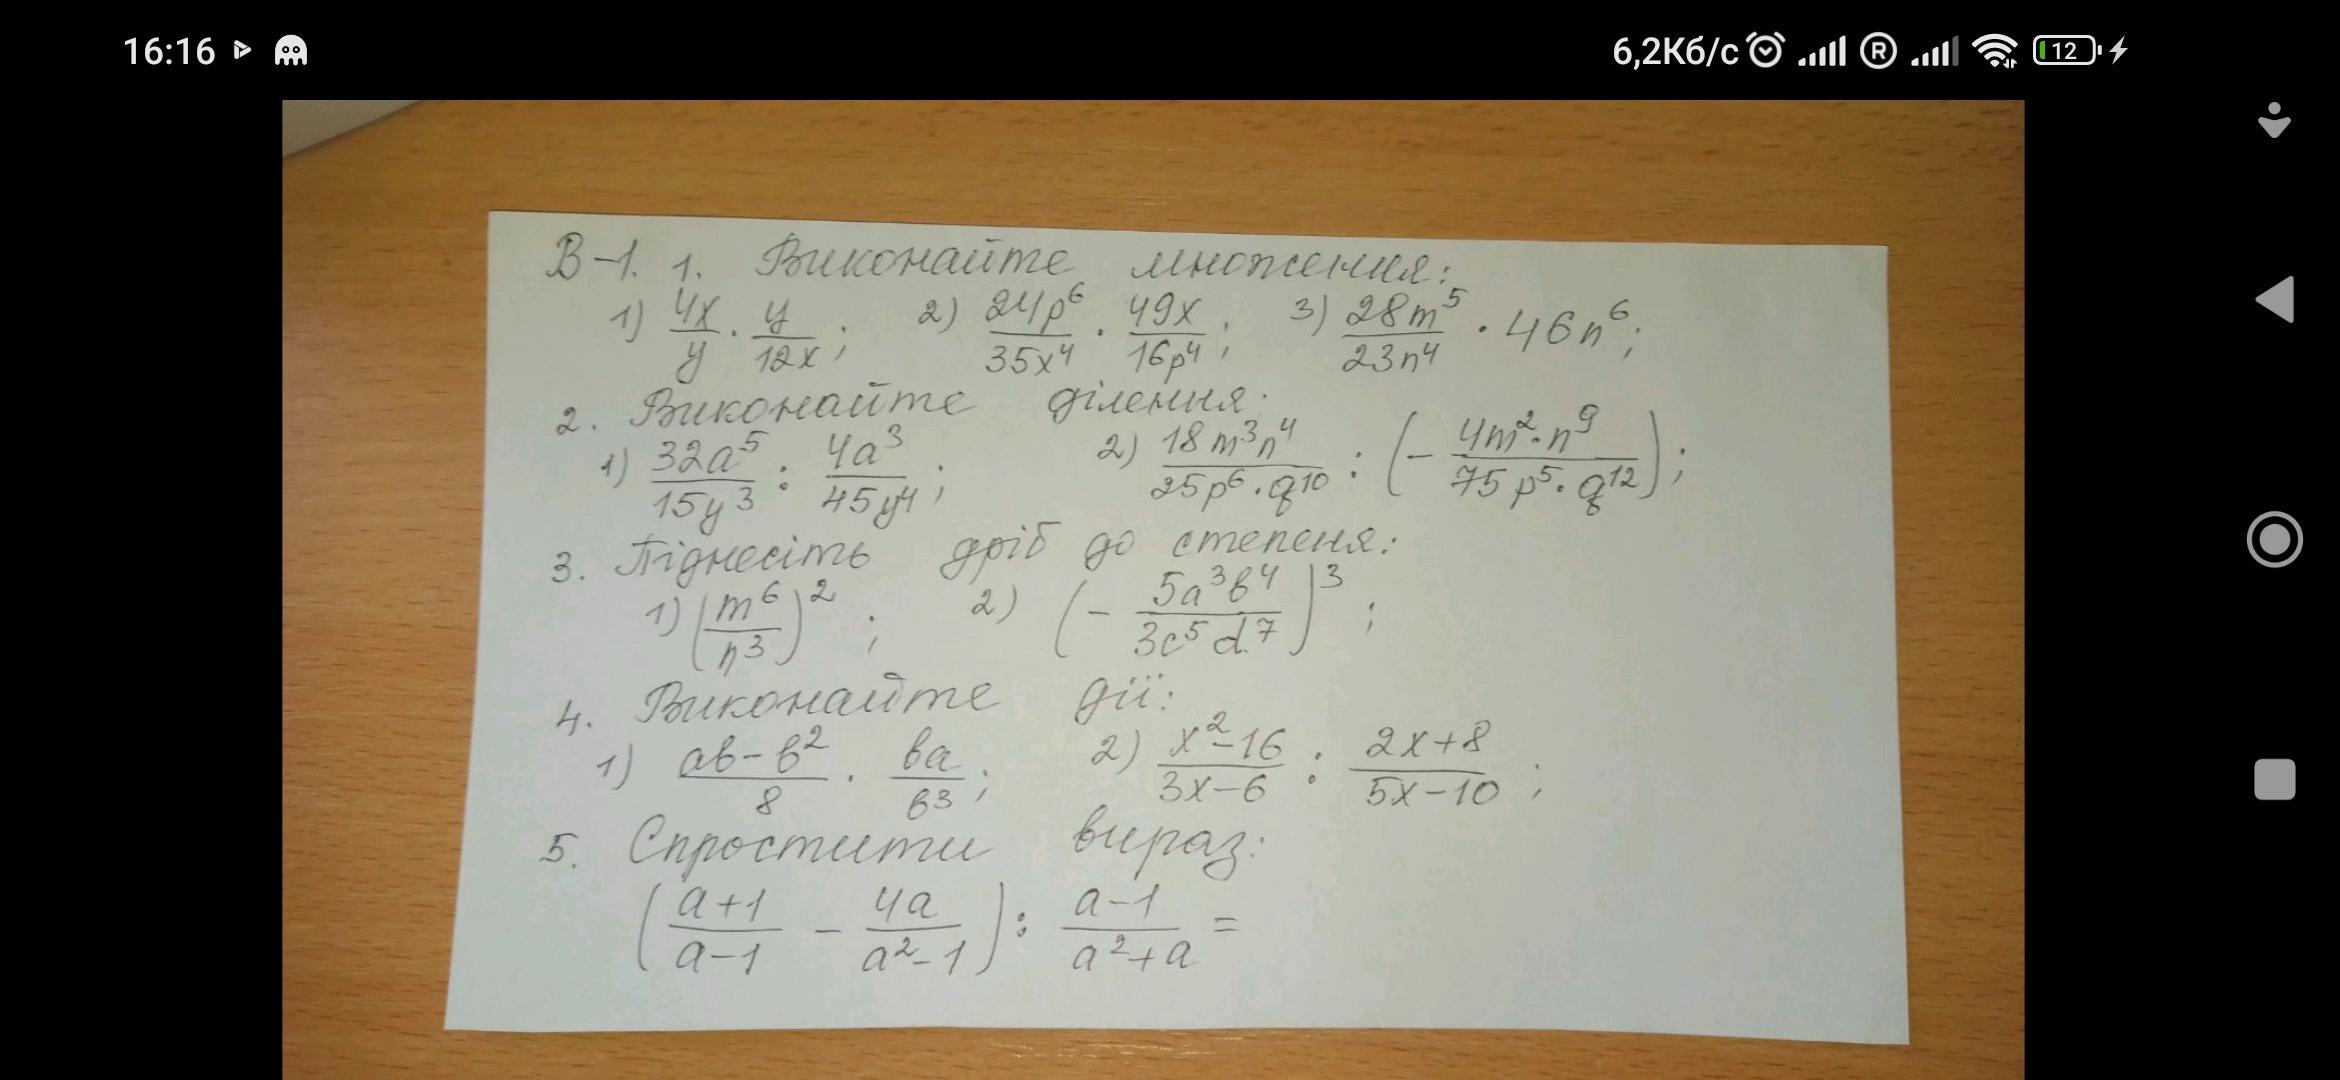 16:16 6,2Кб/с R 12
В-1. 1. Виконайте множення:
1) 4x/y · y/12x; 2) 24p⁶/35x⁴ · 49x/16p⁴; 3) 28m⁵/23n⁴ · 46n⁶;
2. Виконайте ділення:
1) 32a⁵/15y³ : 4a³/45y⁴; 2) 18m³n⁴/25p⁶·q¹⁰ : (- 4m²·n⁹/75p⁵·q¹²);
3. Піднесіть дріб до степеня:
1) (m⁶/n³)²; 2) (- 5a³b⁴/3c⁵d⁷)³;
4. Виконайте дії:
1) ab-b²/8 · ba/b³; 2) x²-16/3x-6 : 2x+8/5x-10;
5. Спростити вираз:
(a+1/a-1 - 4a/a²-1) : a-1/a²+a =